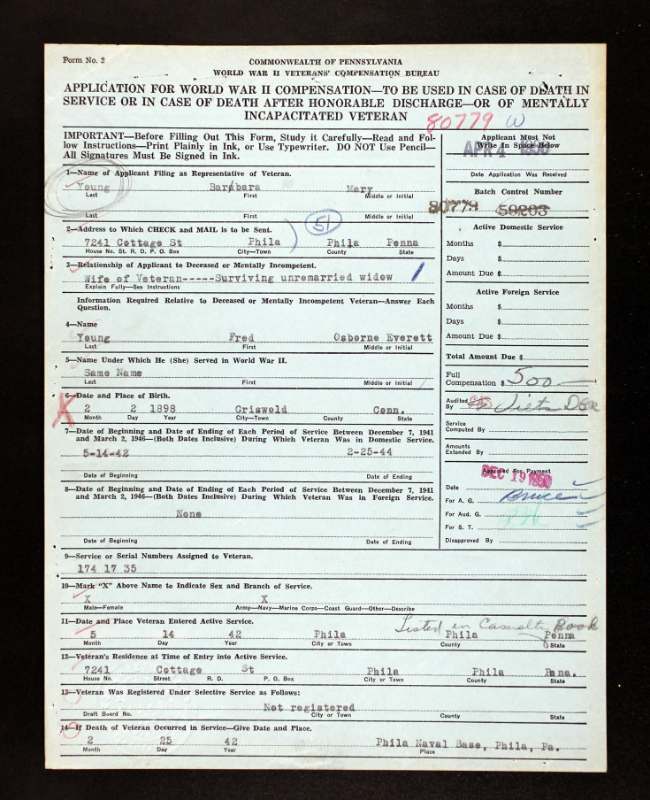 Form No. 2
COMMONWEALTH OF PENNSYLVANIA
WORLD WAR II VETERANS' COMPENSATION BUREAU
APPLICATION FOR WORLD WAR II COMPENSATION—TO BE USED IN CASE OF DEATH IN
SERVICE OR IN CASE OF DEATH AFTER HONORABLE DISCHARGE—OR OF MENTALLY
INCAPACITATED VETERAN
80779 W
IMPORTANT—Before Filling Out This Form, Study it Carefully—Read and Fol-
low Instructions—Print Plainly in Ink, or Use Typewriter. DO NOT Use Pencil—
All Signatures Must Be Signed in Ink.
1—Name of Applicant Filing as Representative of Veteran.
Young Barbara Mary
Last First Middle or Initial
2—Address to Which CHECK and MAIL is to be Sent.
51
7241 Cottage St Phila Phila Penna
House No. St. R. D., P. O. Box City—Town County State
3—Relationship of Applicant to Deceased or Mentally Incompetent.
Wife of Veteran-----Surviving unremarried widow
Explain Fully—See Instructions
Information Required Relative to Deceased or Mentally Incompetent Veteran—Answer Each
Question.
4—Name
Young Fred Osborne Everett
Last First Middle or Initial
5—Name Under Which He (She) Served in World War II.
Same Name
Last First Middle or Initial
6—Date and Place of Birth.
X
2 2 1898 Griswold Conn.
Month Day Year City—Town County State
7—Date of Beginning and Date of Ending of Each Period of Service Between December 7, 1941
and March 2, 1946—(Both Dates Inclusive) During Which Veteran Was in Domestic Service.
5-14-42 2-25-44
Date of Beginning Date of Ending
8—Date of Beginning and Date of Ending of Each Period of Service Between December 7, 1941
and March 2, 1946—(Both Dates Inclusive) During Which Veteran Was in Foreign Service.
None
Date of Beginning Date of Ending
9—Service or Serial Numbers Assigned to Veteran.
174 17 35
10—Mark "X" Above Name to Indicate Sex and Branch of Service.
X X
Male—Female Army—Navy—Marine Corps—Coast Guard—Other—Describe
11—Date and Place Veteran Entered Active Service.
Listed in Casualty Book
5 14 42 Phila Phila Penna
Month Day Year City or Town County State
12—Veteran's Residence at Time of Entry into Active Service.
7241 Cottage St Phila Phila Pena.
House No. Street R. D. P. O. Box City or Town County State
13—Veteran Was Registered Under Selective Service as Follows:
Not registered
Draft Board No. City or Town County State
14—If Death of Veteran Occurred in Service—Give Date and Place.
2 25 42 Phila Naval Base, Phila, Pa.
Month Day Year Place
Applicant Must Not
Write In Space Below
APR 4 1950
Date Application Was Received
Batch Control Number
80779 59203
Active Domestic Service
Months $
Days $
Amount Due $
Active Foreign Service
Months $
Days $
Amount Due $
Total Amount Due $
Full
Compensation $ 500
Audited
By
Service
Computed By
Amounts
Extended By
Approved For Payment
DEC 19 1950
Date
For A. G.
For Aud. G.
For S. T.
Disapproved By